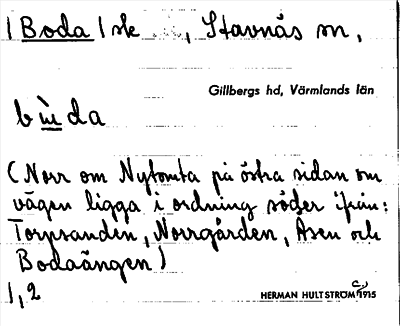 ( Boda ) sk , Stavnäs sn,
Gillbergs hd, Värmlands län
bùda
(Norr om Nytomta på östra sidan om
vägen ligga i ordning söder ifrån:
Torpsanden, Norrgården, Åsen och
Bodaängen)
1,2
HERMAN HULTSTRÖM 1915